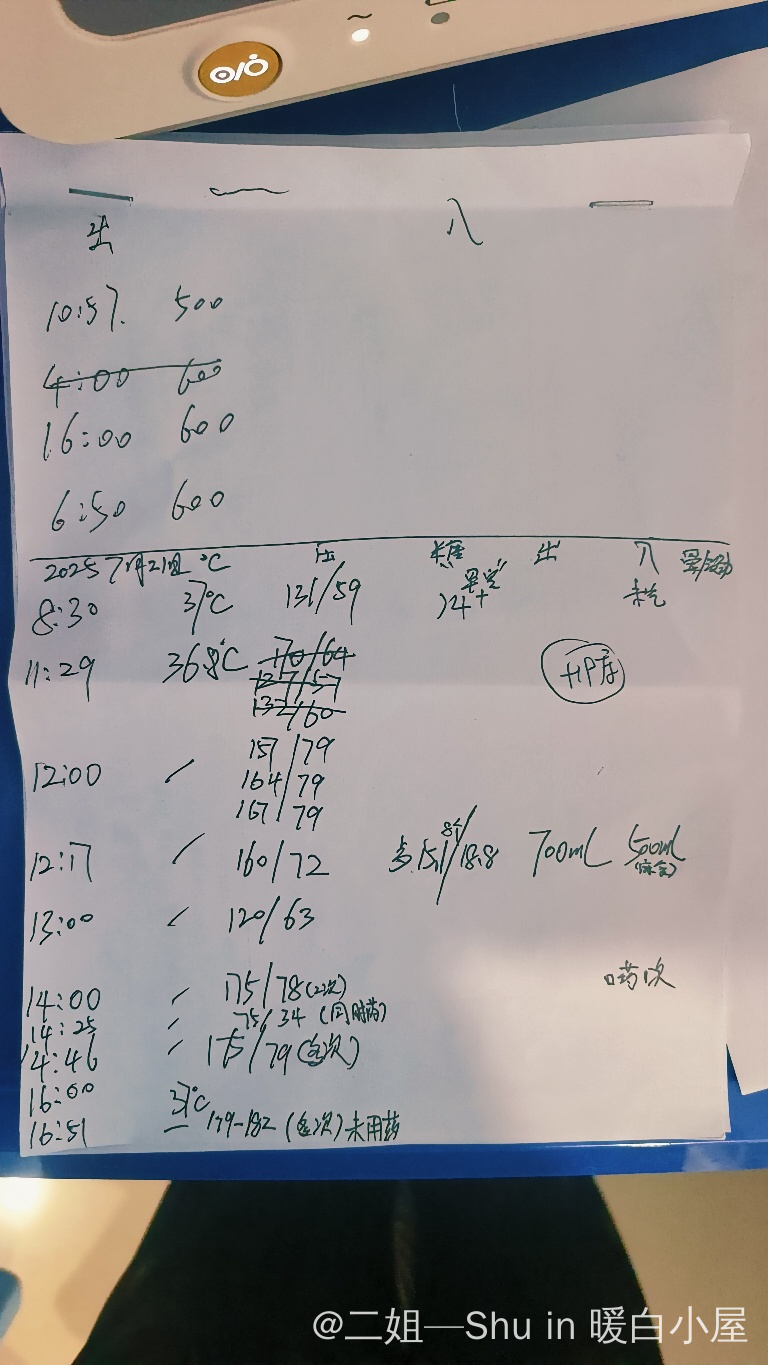 出 入
10:57. 500
4:00 600
16:00 600
6:50 600
2025 7月21日 °C 压 糖 出 入
8:30 37°C 131/59 早空 14+ 未吃
11:29 36.8°C 170/64
127/57
132/60
12:00 / 157/79
164/79
167/79
12:17 / 160/72 15.1/18.8 700mL 500mL
13:00 / 120/63
14:00 / 175/78 (2次)
14:25 / 75/34
14:46 / 175/79
16:00 37°C
16:51 — 179-182 未用药
@二姐—Shu in 暖白小屋